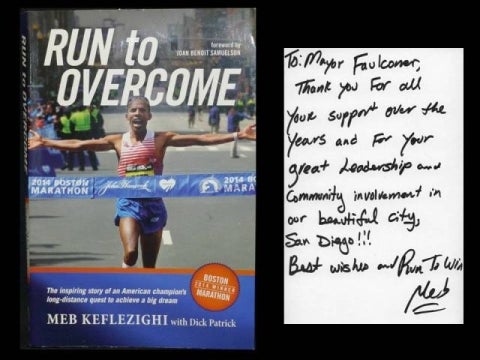 RUN to OVERCOME
RUN to
foreword by
JOAN BENOIT SAMUELSON
OVERCOME
2014 BOSTON
MARATHON
John Hancock
2014 BOSTON
MARATHON
The inspiring story of an American champion's
long-distance quest to achieve a big dream
BOSTON
2014 WINNER
MARATHON
MEB KEFLEZIGHI with Dick Patrick
To: Mayor Faulconer,
Thank you For all
your support over the
years and For your
great Leadership and
Community involvement in
our beautiful city,
San Diego!!!
Best wishes and Run To Win
Meb